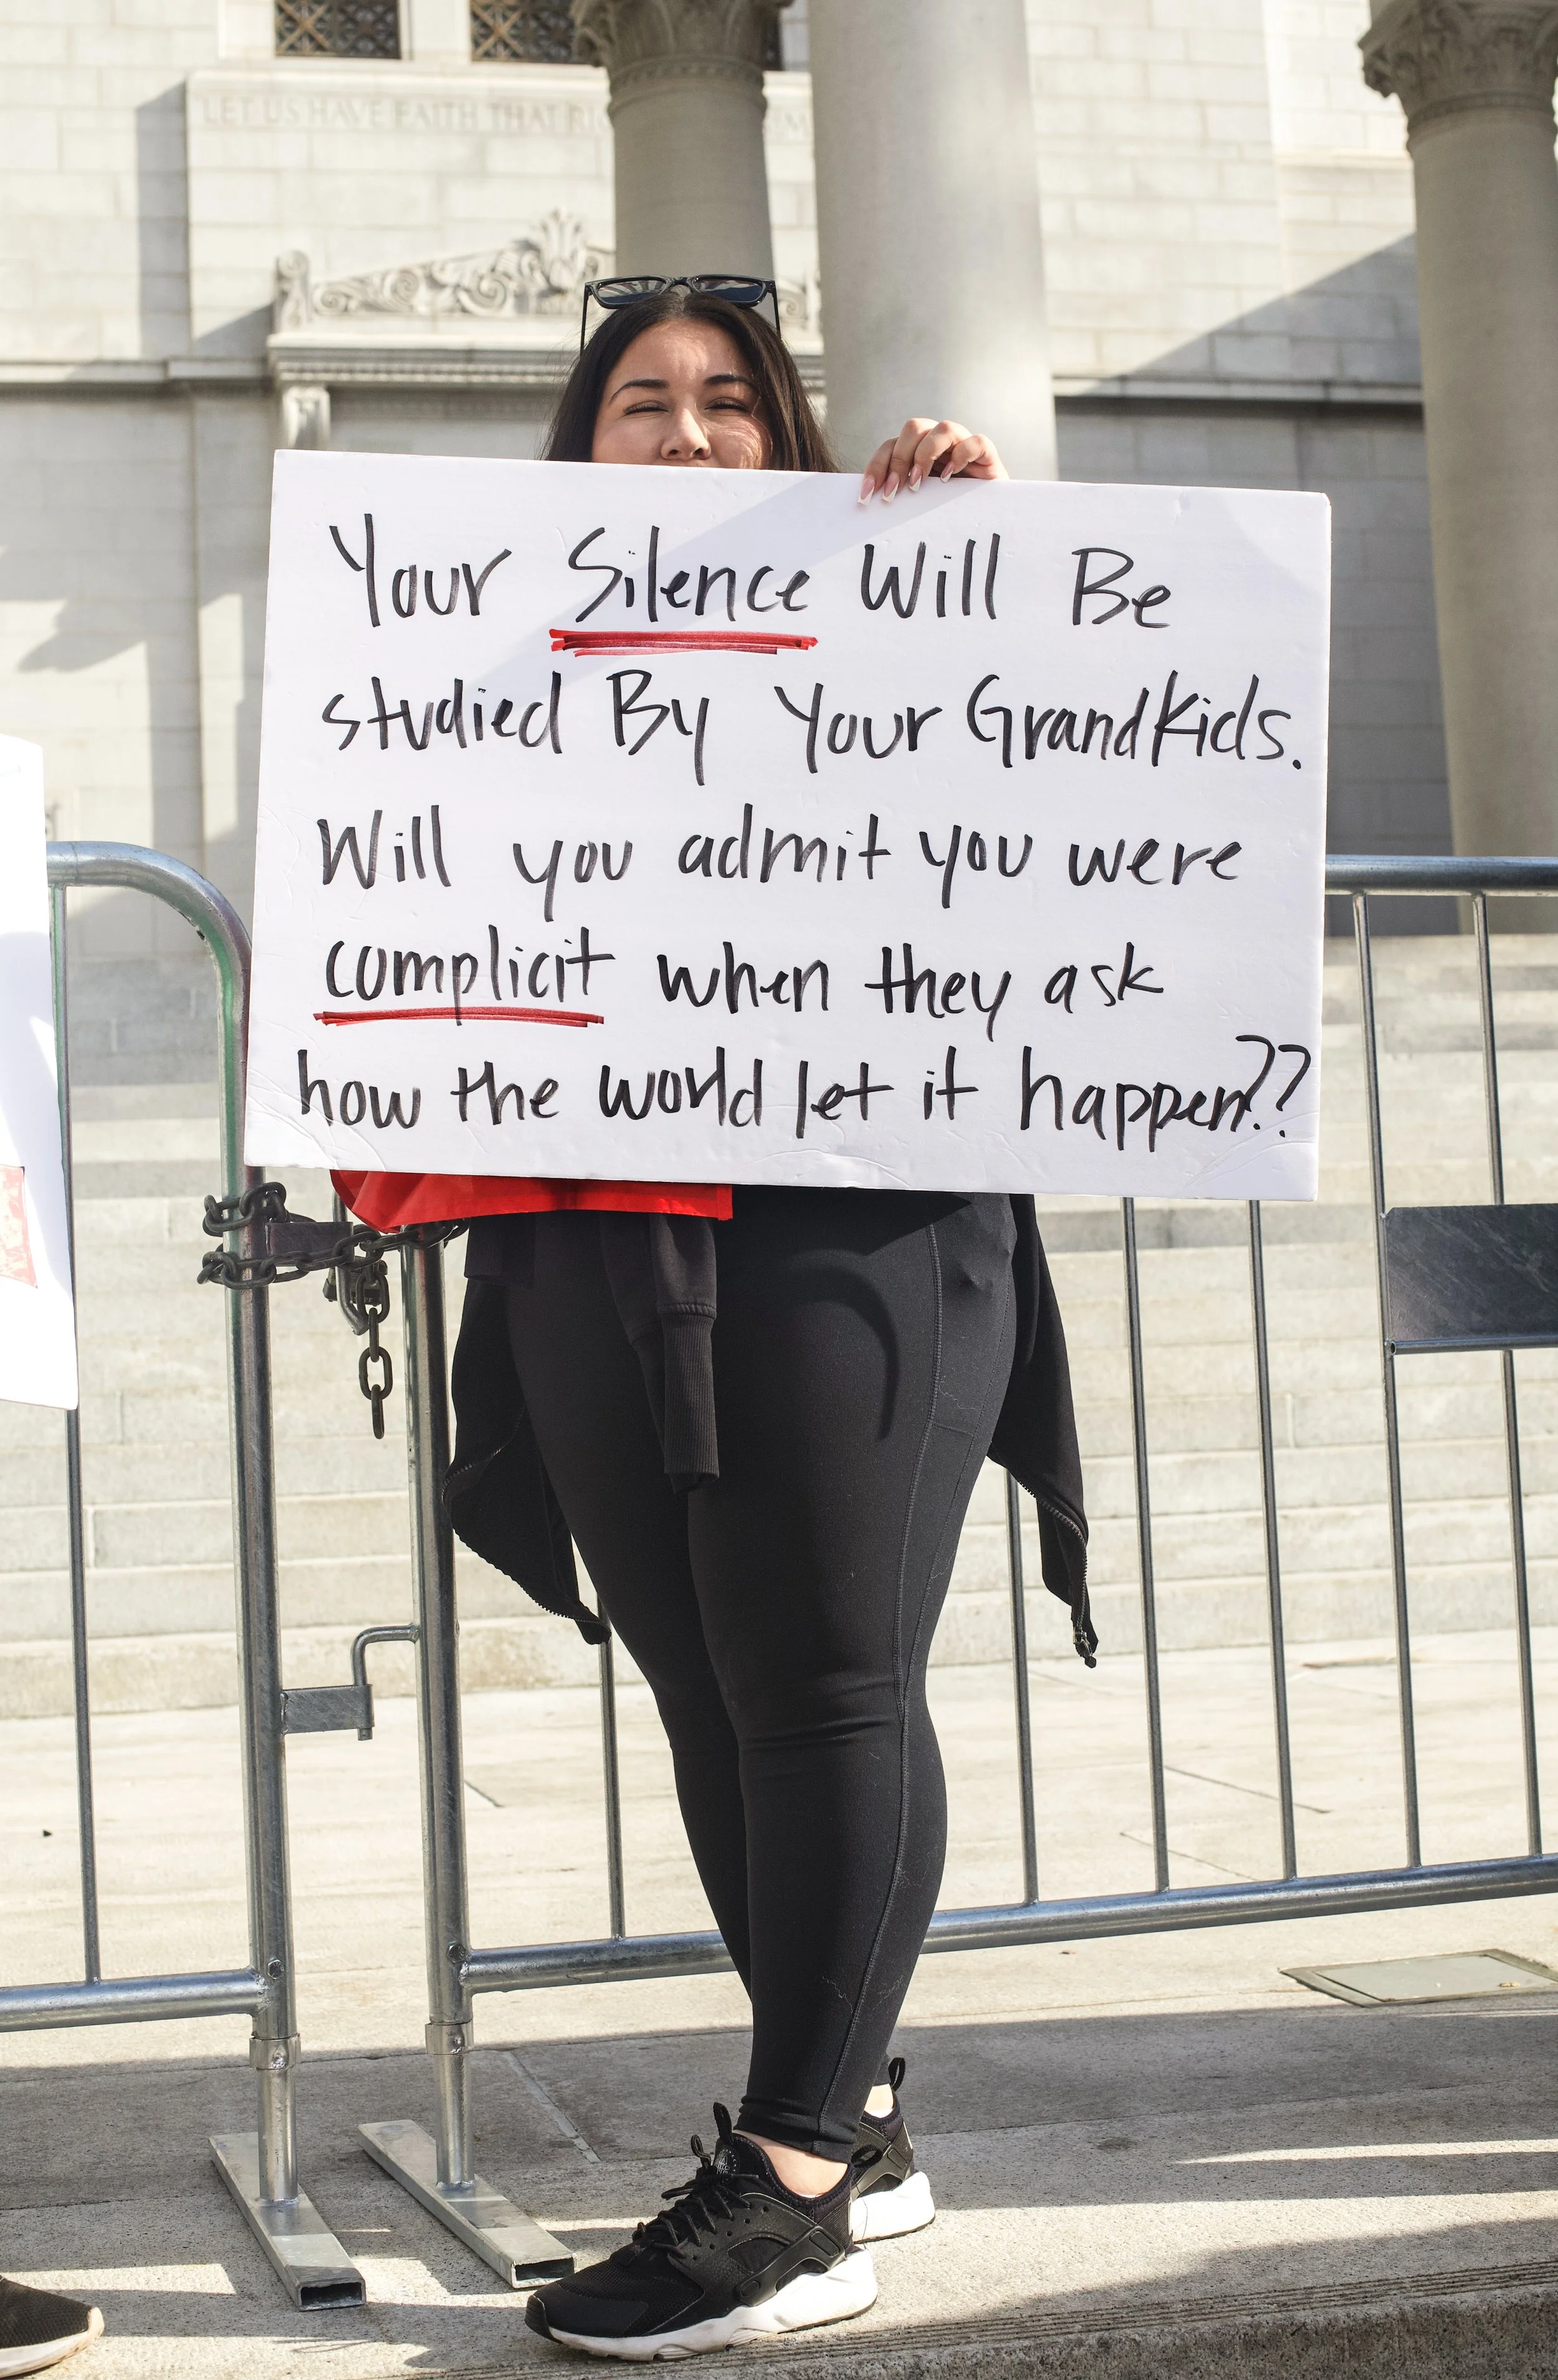 LET US HAVE FAITH THAT
Your Silence Will Be
studied By Your Grandkids.
Will you admit you were
complicit when they ask
how the world let it happen??